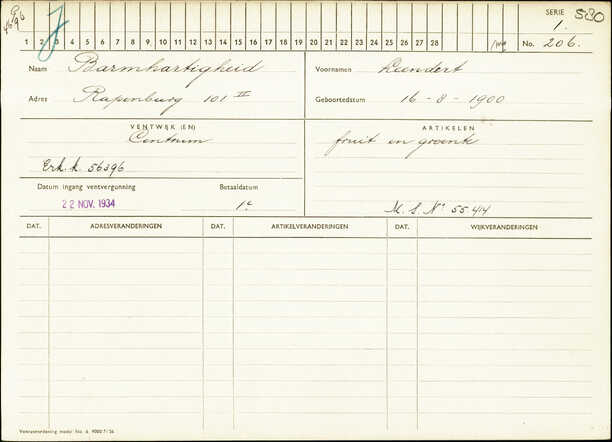 SERIE 580
1.
1 2 3 4 5 6 7 8 9 10 11 12 13 14 15 16 17 18 19 20 21 22 23 24 25 26 27 28
No. 206.
Naam Barmhartigheid
Voornamen Leendert
Adres Rapenburg 101 II
Geboortedatum 16-8-1900
VENTWIJK (EN)
ARTIKELEN
Centrum
fruit en groente
Erk. k. 56396
Datum ingang ventvergunning
Betaaldatum
22 NOV. 1934
1e
M. S. No 55414
DAT. ADRESVERANDERINGEN DAT. ARTIKELVERANDERINGEN DAT. WIJKVERANDERINGEN
Ventverordening model No. 6